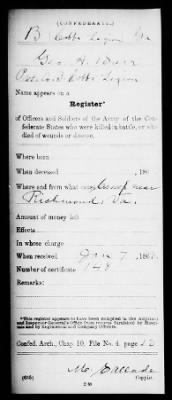 (CONFEDERATE.)
B Cobb's Legion Ga
Geo. A. Burr
Cobb's Legion
Name appears on a
Register*
of Officers and Soldiers of the Army of the Con-
federate States who were killed in battle, or who
died of wounds or disease.
Where born
When deceased , 186 .
Where and from what cause Camp near
Richmond, Va.
Amount of money left
Effects
In whose charge
When received Jan 7, 186
Number of certificate 148
Remarks:
*This register appears to have been compiled in the Adjutant
and Inspector General's Office from returns furnished by Hospi-
tals and by Regimental and Company Officers.
Confed. Arch., Chap. 10, File No. 4, page
Copyist.